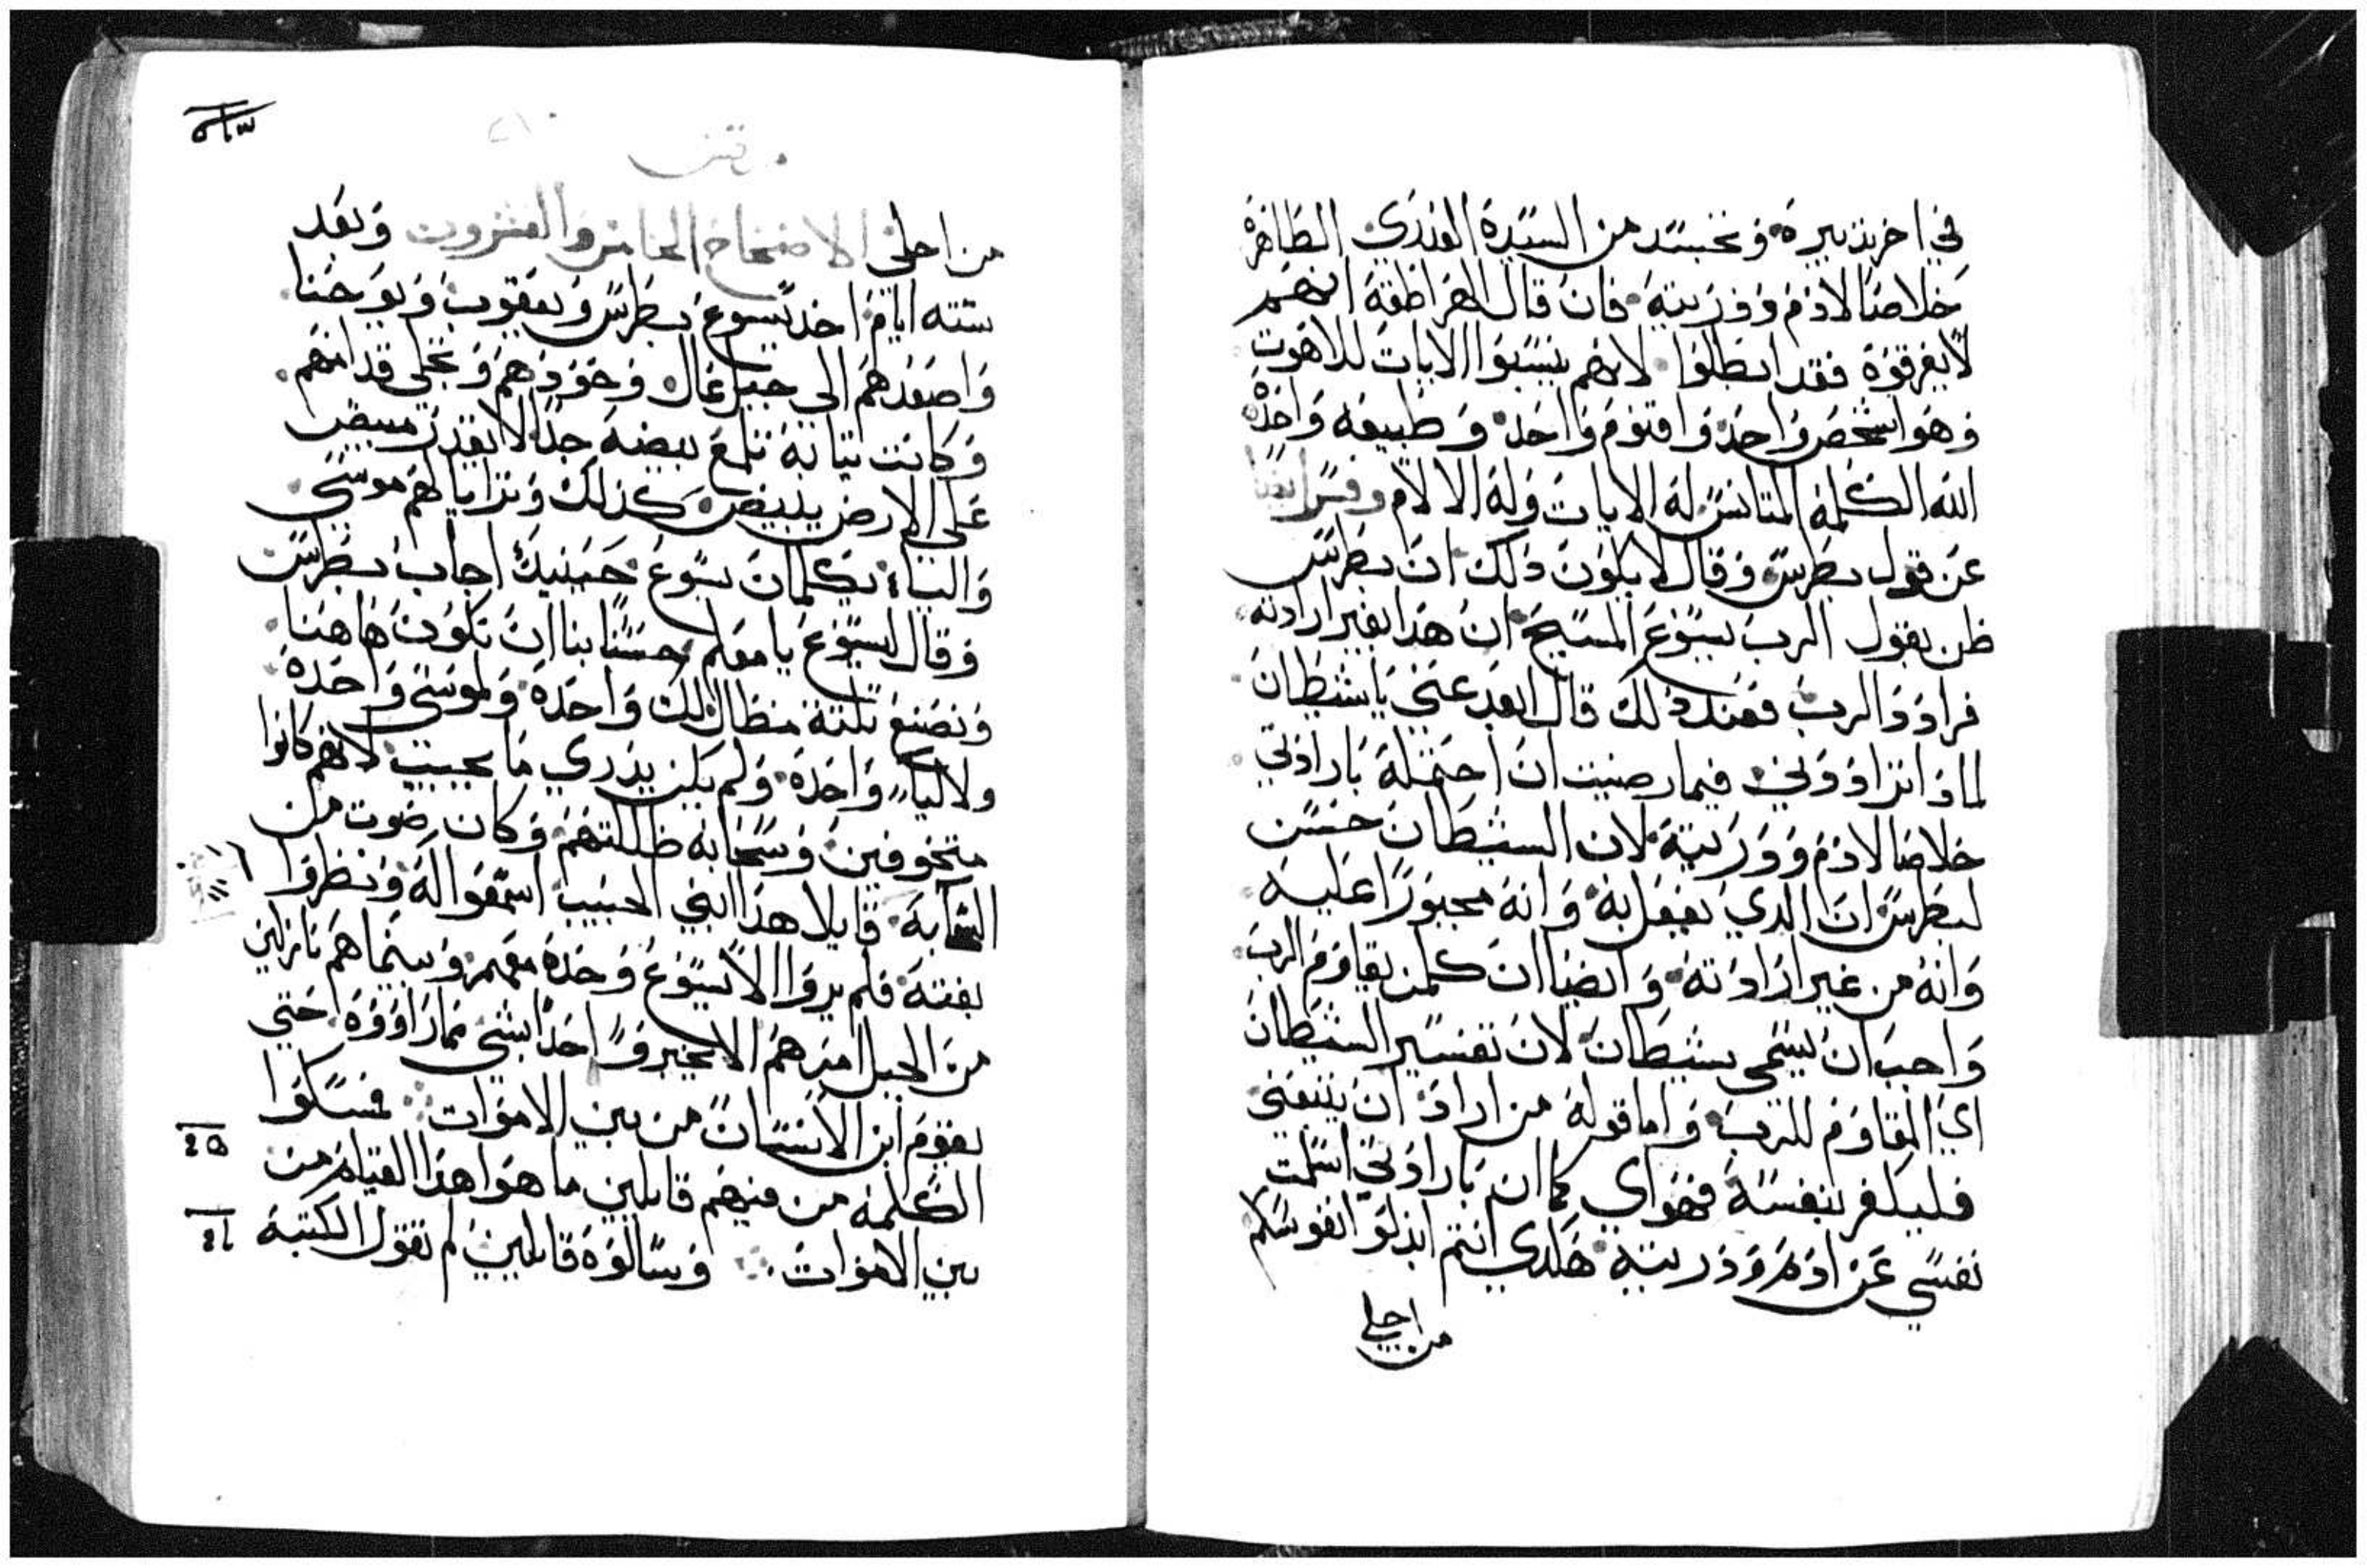 في اخر تدبيره وتجسد من السيدة العذري الطاهرة
خلاصا لادم وذريته فان قال الهراطقة انهم
لا يفرقوه فقد ابطلوا لانهم ينسبوا الايات للاهوت
وهوا شخص واحد واقنوم واحد وطبيعه واحده
الله الكلمة المتانس له الايات وله الالام وفسر ايضا
عن قول بطرس وقال لا يكون ذلك ان بطرس
ظن بقول الرب يسوع المسيح ان هذا بغير ارادته
فرادد الرب فعند ذلك قال ابعد عني يا شيطان
لماذا تراددني فيما رضيت ان احتمله بارادتي
خلاصا لادم وذريته لان الشيطان حسن
لبطرس ان الدي يفعل به وانه مجبورا عليه
وانه من غير ارادته وايضا ان كلمن يقاوم الرب
واجب ان يسمى شيطان لان تفسير الشيطان
اي المقاوم للرب واما قوله من اراد ان يتبعني
فليكفر بنفسه فهواي كما ان بارادتي اسلمت
نفسي عن ادم وذريته هكدي انتم ابدلوا نفوسكم
من اجلي
من اجلي الاصحاح الخامس والعشرون وبعد
سته ايام اخد يسوع بطرس ويعقوب ويوحنا
واصعدهم الي جبل عال وحودهم وتجلى قدامهم
وكانت تيابه تلمع بيضه جدا لا يقدر مبيض
على الارض يبيض كذلك وترايا لهم موسى
والياء يكلمان يسوع حينيك اجاب بطرس
وقال ليسوع يا معلم حسنا بنا ان نكون هاهنا
ونصنع تلتة مظال لك واحدة ولموسى واحدة
ولالياء واحدة ولم يكن يدري ما يجيب لانهم كانوا
متخوفين وسحابه ظللتهم وكان صوت من
السحابة قايلا هذا ابني الحبيب اسمعوا له ونظروا
بغتة فلم يروا الا يسوع وحده معهم وبينما هم نازلين
من الجبل امرهم الا يخبروا احدا بشي مما راووه حتي
يقوم ابن الانسان من بين الاموات فمسكوا
الكلمه من فيهم قايلين ما هوا هذا القيام من
بين الاموات وسالوه قايلين لم تقول الكتبة